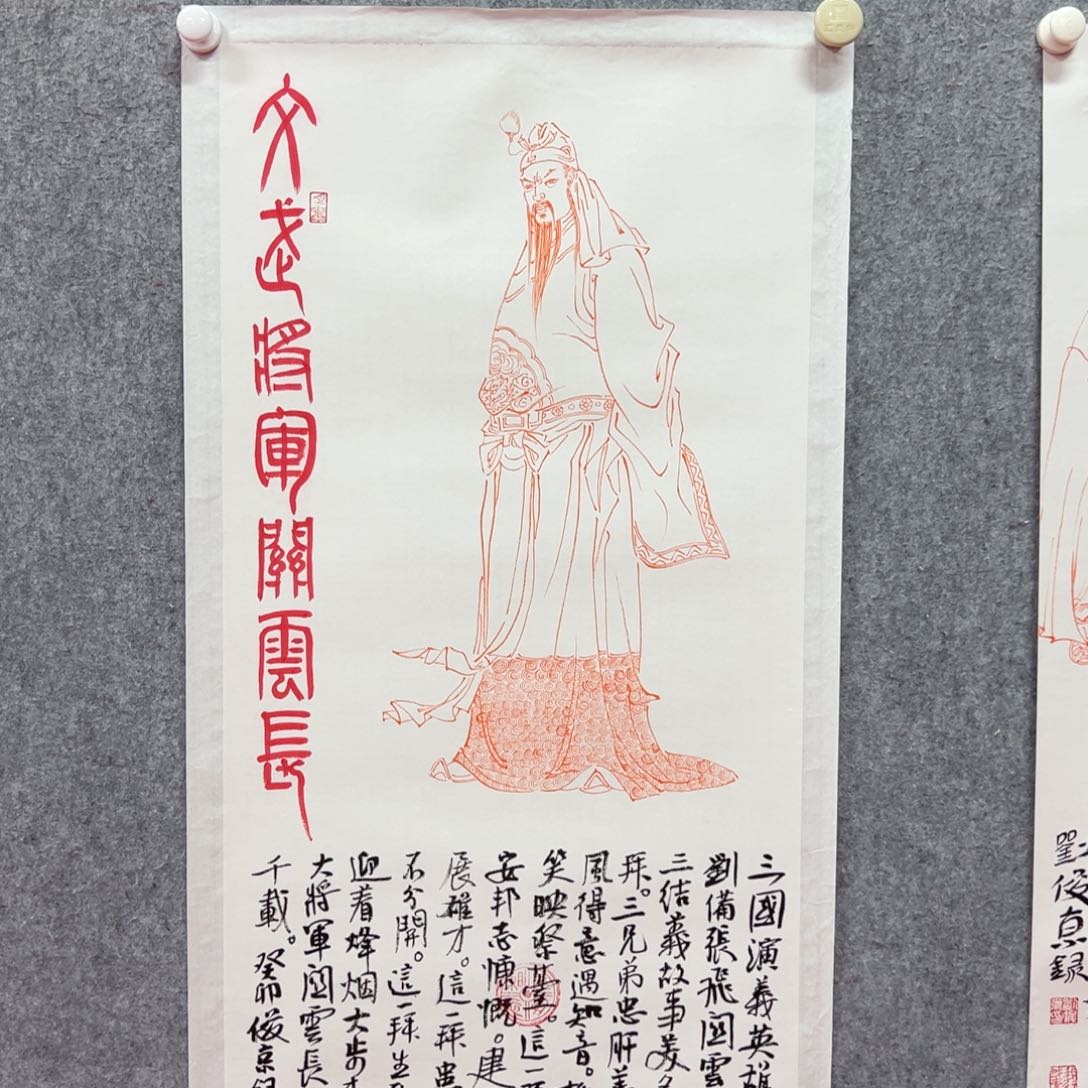 文武將軍關雲長
三國演義英雄
劉備張飛関雲
三結義故事美名
拜。三兄弟忠肝義
風得意遇知音。
笑映祭臺。這一
安邦志慷慨。建
展雄才。這一拜忠
不分開。這一拜生
迎着烽烟大步
大將軍関雲長
千載。癸卯俊京録
俊京録